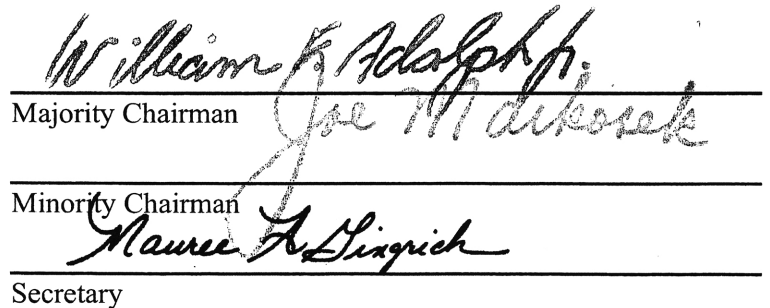 William F Adolph Jr.
Majority Chairman
Joe Markosek
Minority Chairman
Mauree A Gingrich
Secretary